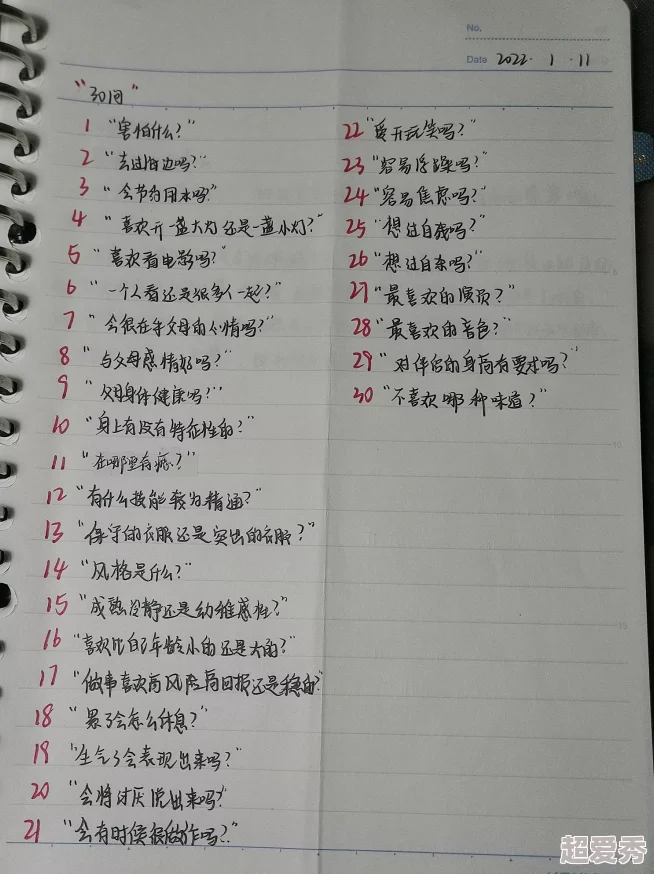 No.
Date 2022 · 1 · 11
"30问"
1 "害怕什么?"
2 "去过海边吗?"
3 "会节约用水吗?"
4 "喜欢开一盏大灯还是一盏小灯?"
5 "喜欢看电影吗?"
6 "一个人看还是很多人一起?"
7 "会很在乎父母的心情吗?"
8 "与父母感情好吗?"
9 "父母身体健康吗?"
10 "身上有没有特征性的?"
11 "在哪里有痣?"
12 "有什么技能较为精通?"
13 "保守的衣服还是突出的衣服?"
14 "风格是什么?"
15 "成熟冷静还是幼稚感性?"
16 "喜欢比自己年龄小的还是大的?"
17 "做事喜欢高风险高回报还是稳的?"
18 "累了会怎么休息?"
19 "生气了会表现出来吗?"
20 "会将讨厌说出来吗?"
21 "会有时候很做作吗?"
22 "爱开玩笑吗?"
23 "容易浮躁吗?"
24 "容易焦虑吗?"
25 "想过自残吗?"
26 "想过自杀吗?"
27 "最喜欢的演员?"
28 "最喜欢的音色?"
29 "对伴侣的身高有要求吗?"
30 "不喜欢哪种味道?"
超爱秀